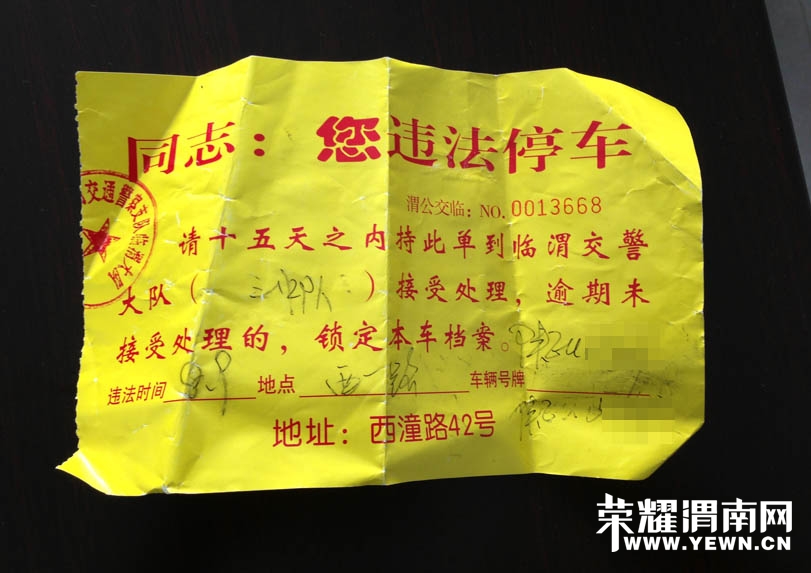 同志：您违法停车
渭公交临：NO.0013668
请十五天之内持此单到临渭交警
大队（三中队）接受处理，逾期未
接受处理的，锁定本车档案。
违法时间 地点 西一路 车辆号牌
地址：西潼路42号
交通警察支队临渭大队
荣耀渭南网
WWW.YEWN.CN